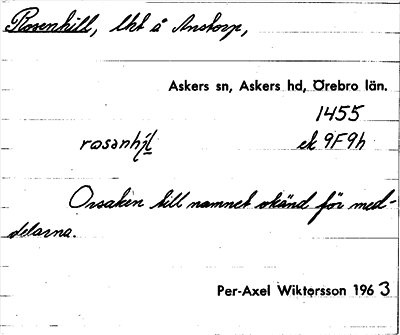 Rosenhill, lht å Anstorp,
Askers sn, Askers hd, Örebro län.
1455
rosanhil ek 9F9h
Orsaken till namnet okänd för med-
delarna.
Per-Axel Wiktorsson 1963